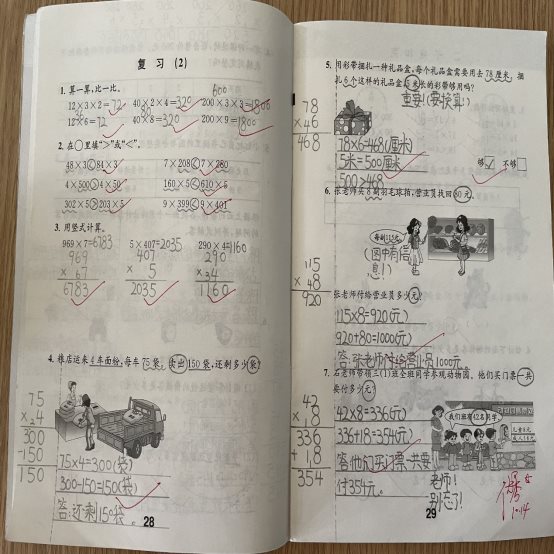 复 习 (2)
1. 算一算,比一比。
600
12×3×2=72 40×2×4=320 200×3×3=1800
36
12×6=72 40×8=320 200×9=1800
2. 在○里填“>”或“<”。
48×3<84×3 7×208<7×280
4×500>4×50 160×5<610×5
302×5>203×5 9×399<9×401
3. 用竖式计算。
969×7=6783 5×407=2035 290×4=1160
969 407 290
× 67 × 5 × 34
6783 2035 1160
4. 粮店运来4车面粉,每车75袋,卖出150袋,还剩多少袋?
75
×24
300
-150
150
75×4=300(袋)
300-150=150(袋)
答:还剩150袋。
28
5. 用彩带捆扎一种礼品盒,每个礼品盒需要用去78厘米,捆
扎6个这样的礼品盒,5米长的彩带够用吗?
重要!(要换算!)
78
×46
468
78×6=468(厘米)
5米=500厘米
500>468
够 不够
6. 张老师买8副羽毛球拍,营业员找回80元。
每副115元
(图中有信
息!)
张老师付给营业员多少元?
115
×48
920
115×8=920(元)
920+80=1000(元)
答:张老师付给营业员1000元。
7. 石老师带领三(1)班全班同学参观动物园,他们买门票一共
要付多少元?
我们班有42名同学。
儿童8元
成人18元
42
×18
336
+18
354
42×8=336(元)
336+18=354(元)
答:他们买门票一共要
付354元。
老师!
别忘了!
10.14
29